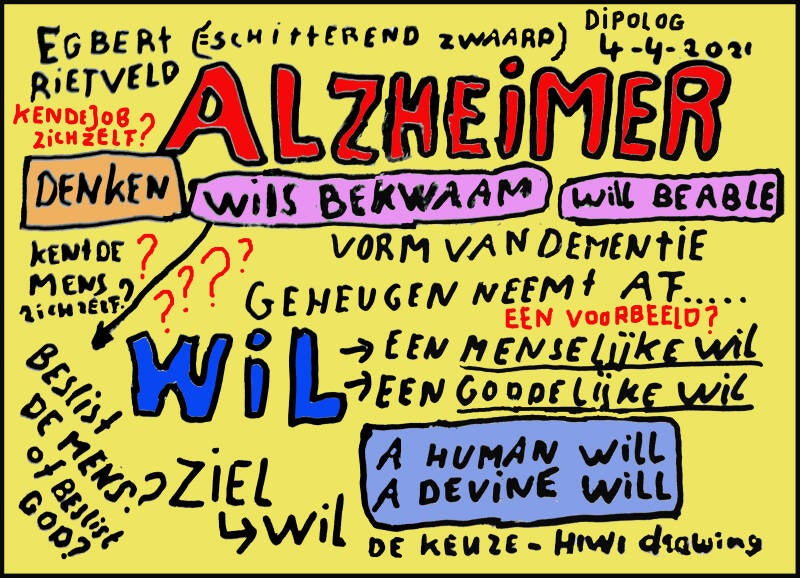 EGBERT (ESCHITTEREND ZWAARD)
RIETVELD
DIPOLOG
4-4-2021
ALZHEIMER
KENDE JOB
ZICHZELF?
DENKEN
WILS BEKWAAM
WILL BEABLE
KENT DE ?
MENS
ZICHZELF?
? ? ? ?
VORM VAN DEMENTIE
GEHEUGEN NEEMT AF.....
EEN VOORBEELD?
WIL
→ EEN MENSELIJKE WIL
→ EEN GODDELIJKE WIL
BESLIST
DE MENS?
OF BESLIST
GOD?
ZIEL
↳ WIL
A HUMAN WILL
A DEVINE WILL
DE KEUZE - HIWI drawing